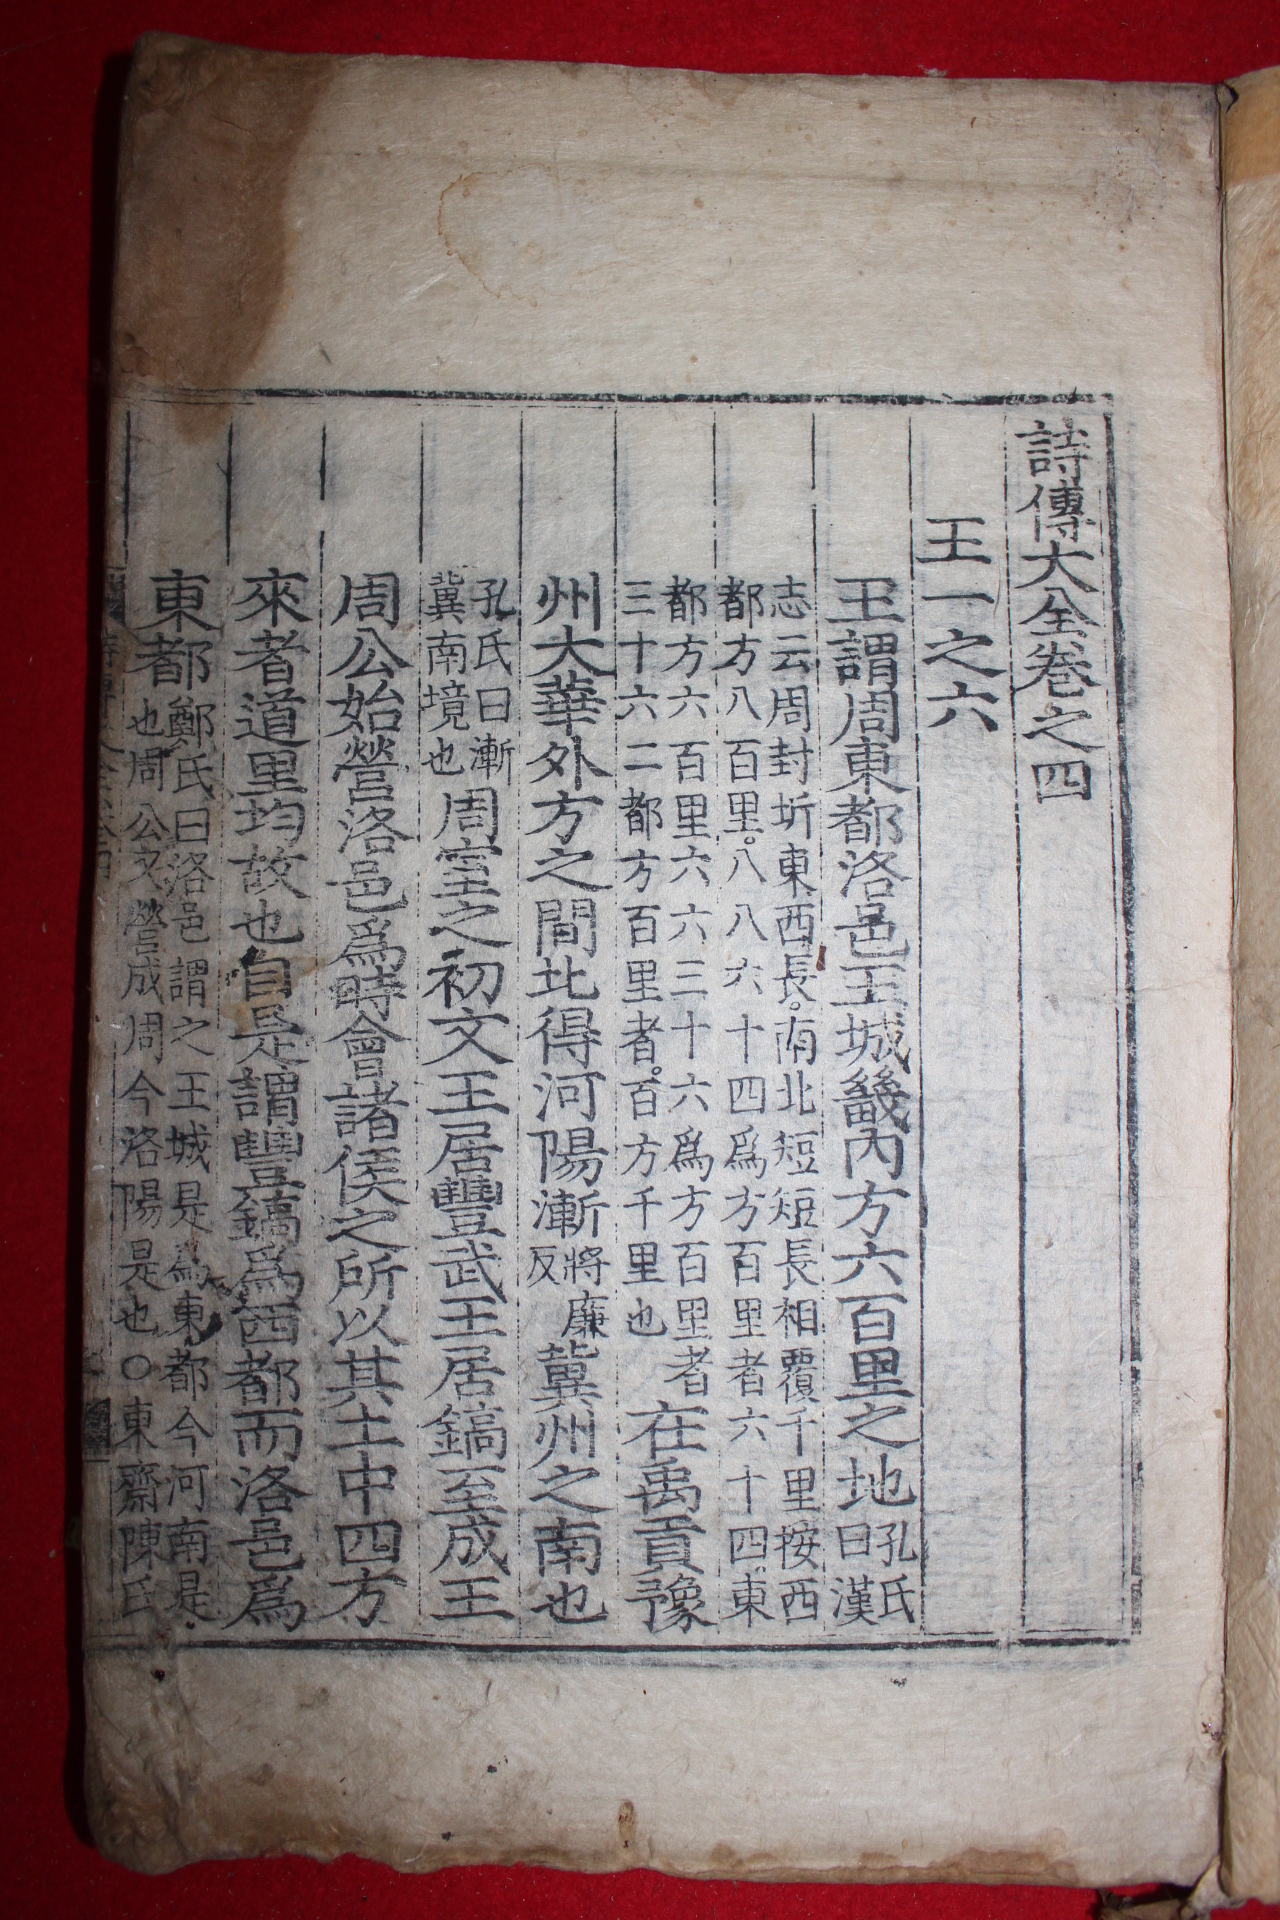 詩傳大全卷之四
王一之六
王謂周東都洛邑王城畿內方六百里之地孔氏曰漢
志云周封圻東西長。南北短短長相覆千里按西
都方八百里。八八六十四爲方百里者六十四東
都方六百里六六三十六爲方百里者
三十六二都方百里者。百方千里也在禹貢豫
州大華外方之間北得河陽漸將廉反冀州之南也
孔氏曰漸冀南境也周室之初文王居豐武王居鎬至成王
周公始營洛邑爲時會諸侯之所以其土中四方
來者道里均故也自是謂豐鎬爲西都而洛邑爲
東都鄭氏曰洛邑謂之王城是爲東都今河南是
也周公又營成周今洛陽是也○東齋陳氏